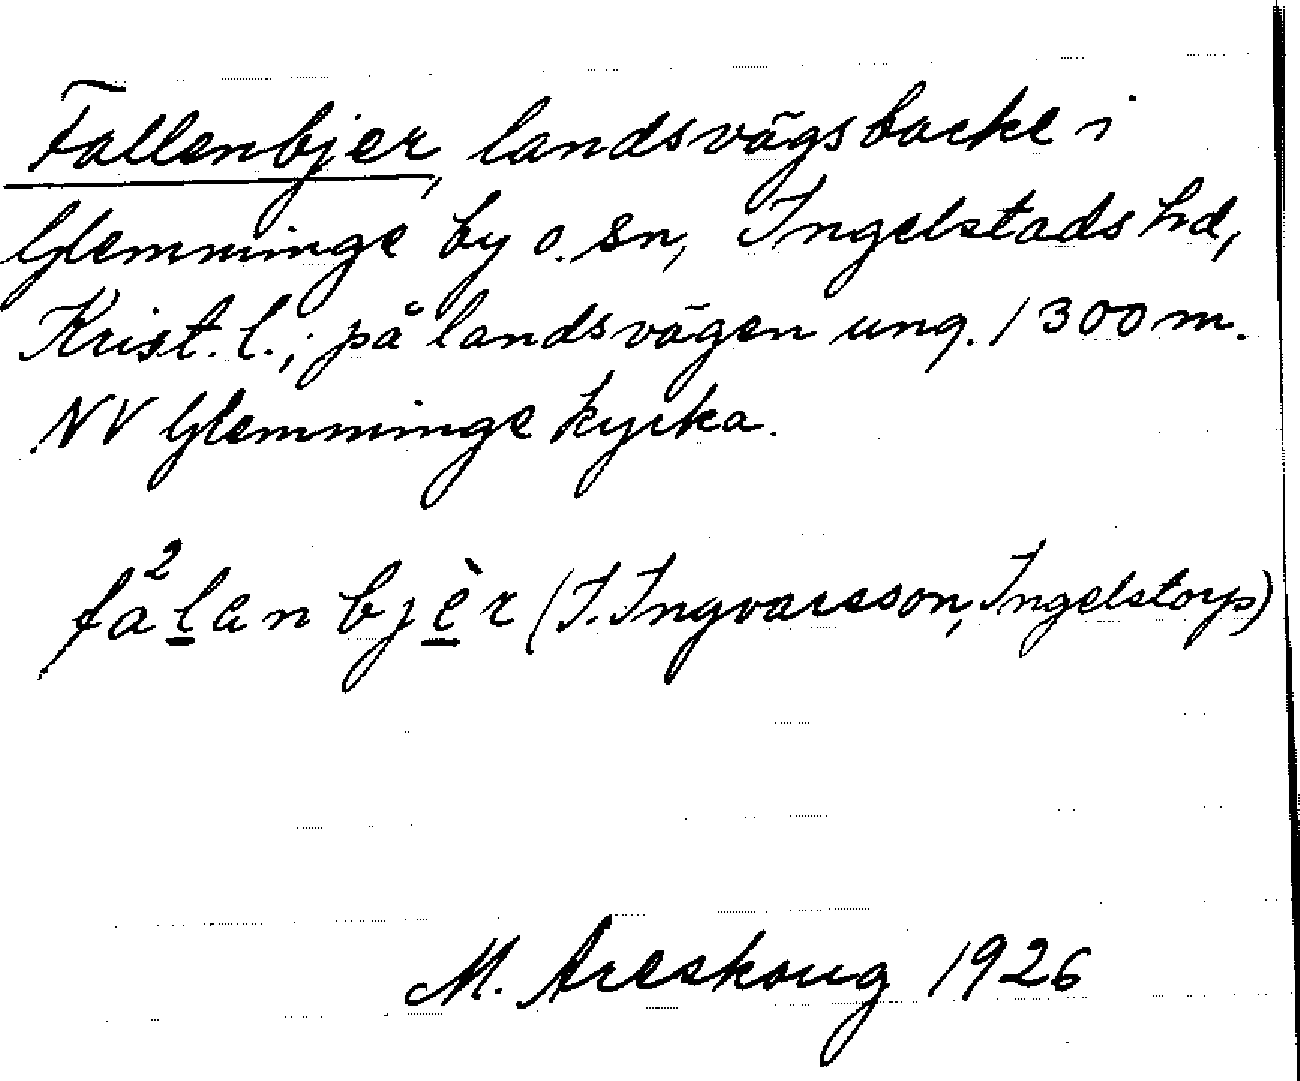 Fallenbjer, landsvägsbacke i
Glemminge by o. sn, Ingelstads hd,
Krist. l.; på landsvägen ung. 1300 m.
NV Glemminge kyrka.
fa²l̲en bjè̲r (J. Ingvarsson, Ingelstorp)
M. Areskoug 1926